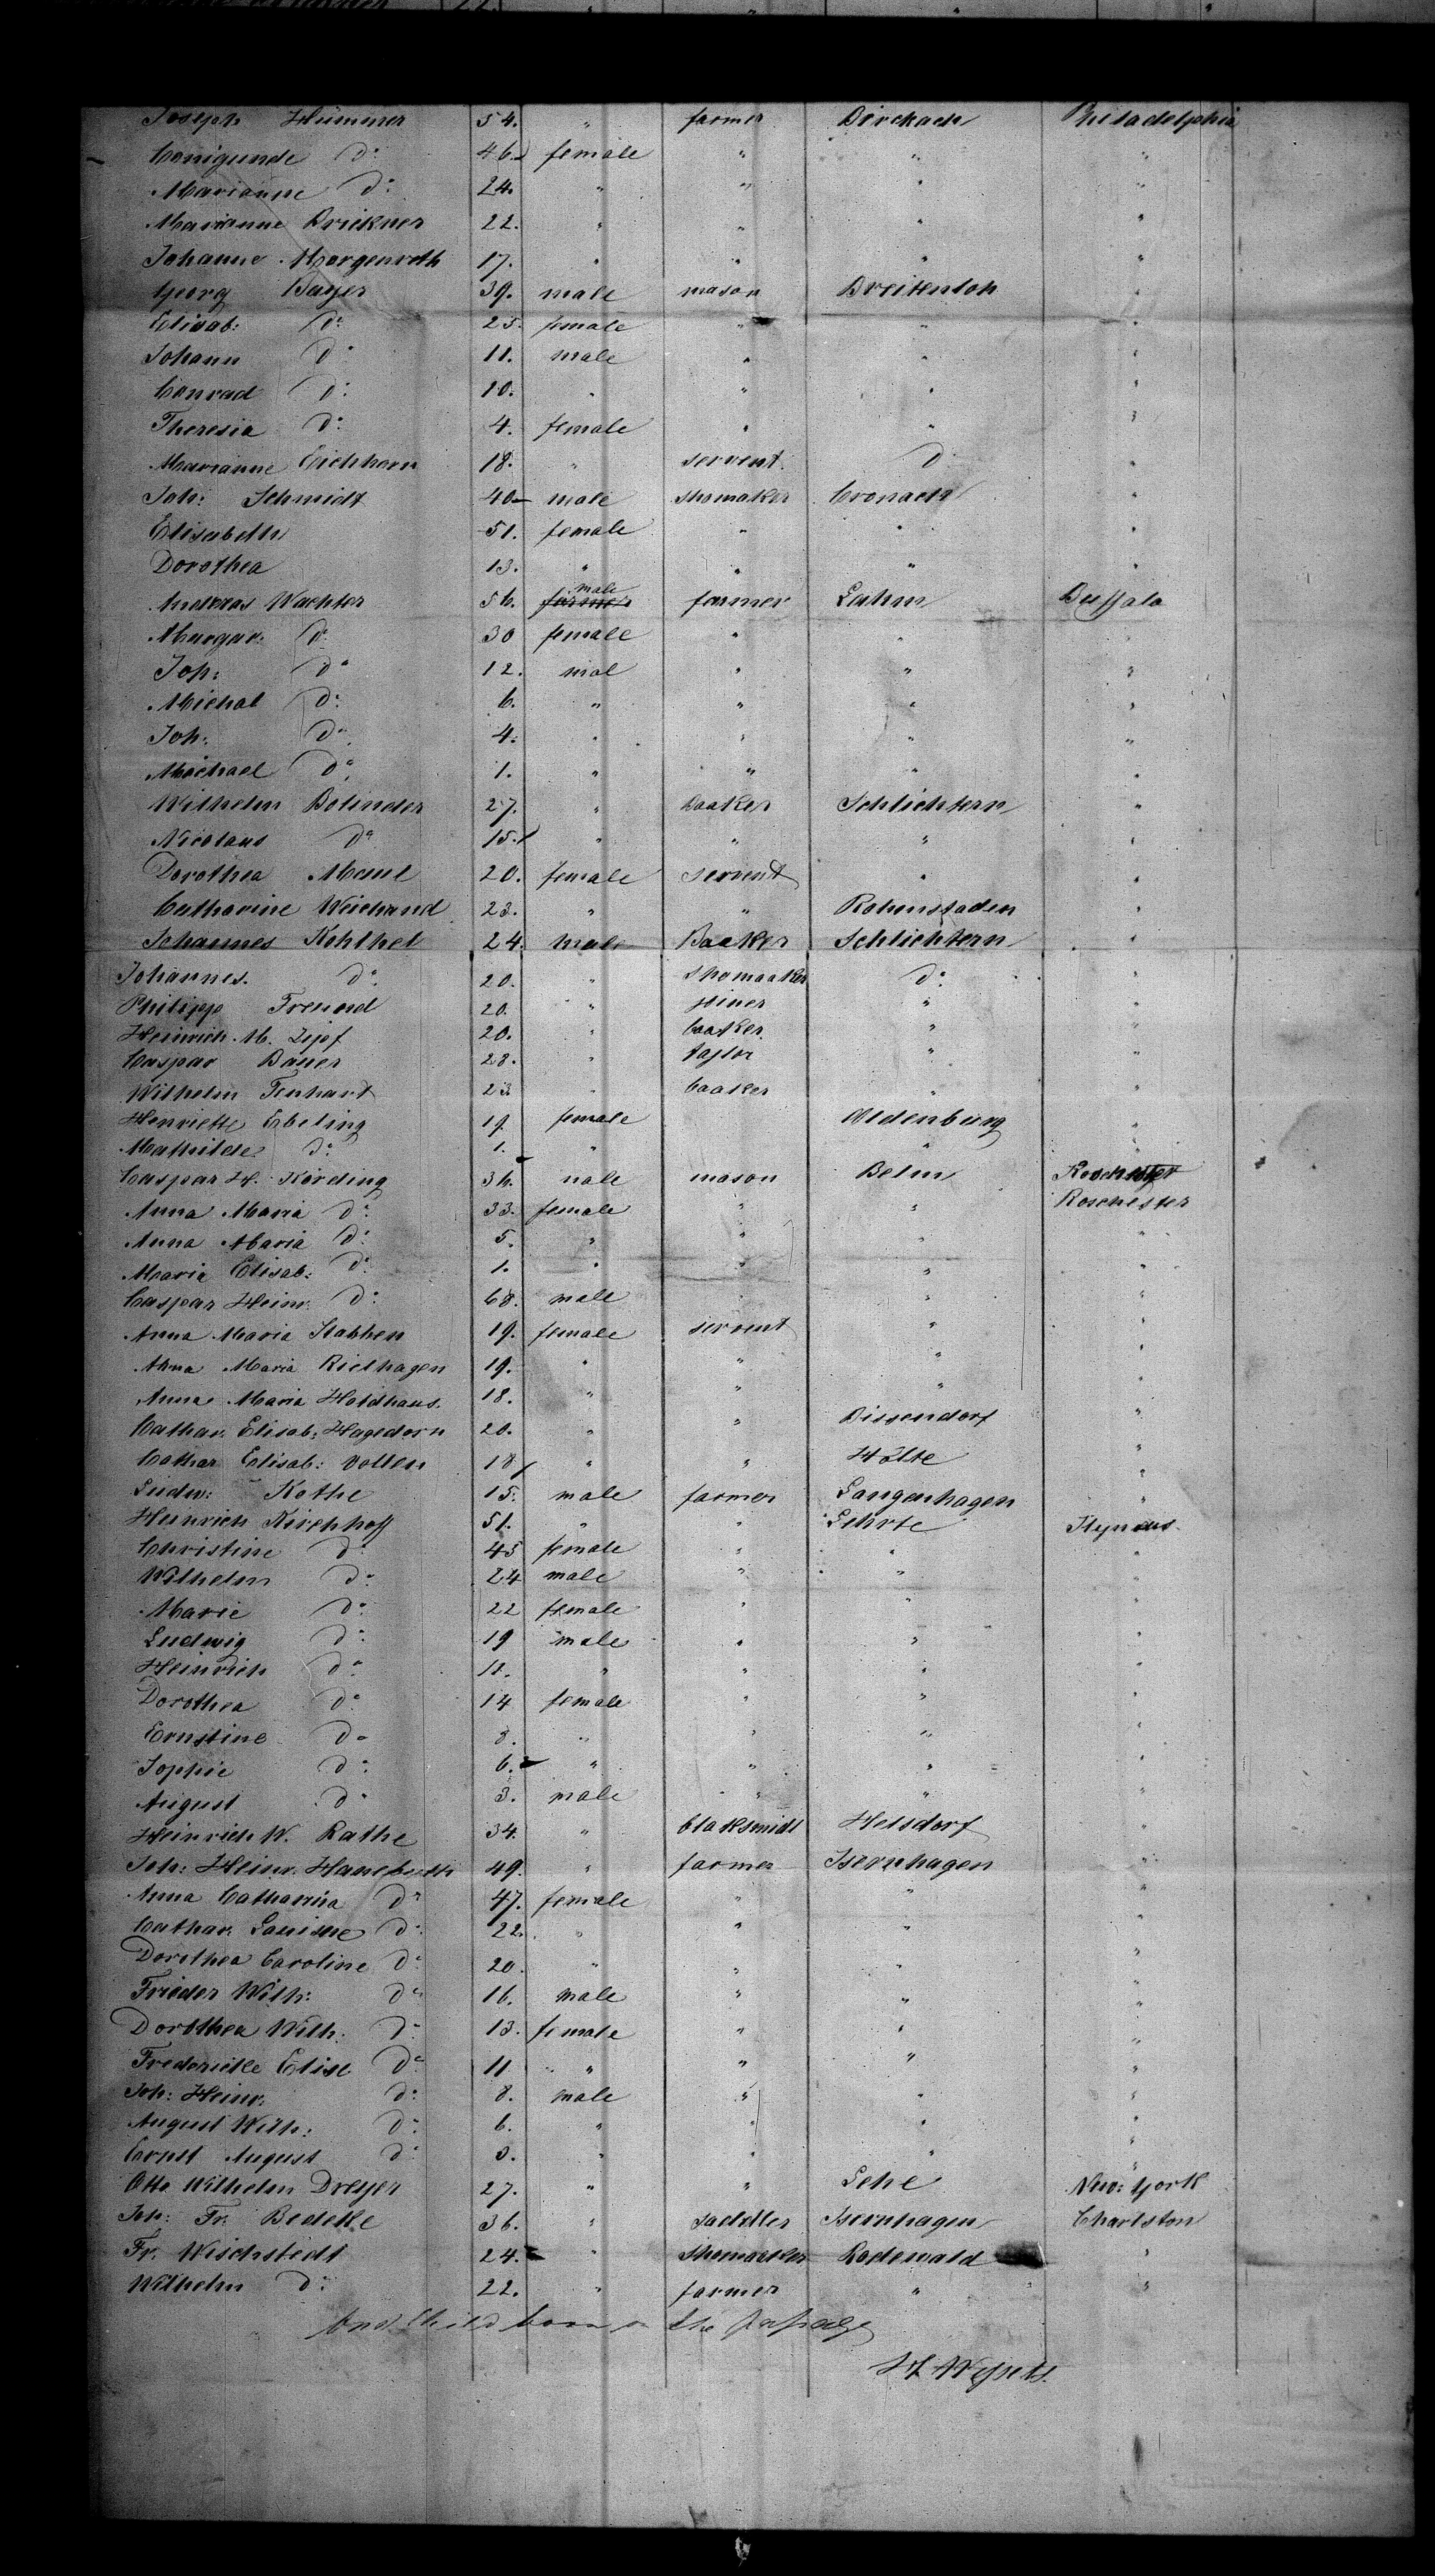 Joseph Hümmer 54. " farmer Birckach Philadelphia
Conigunde do 46. female " " "
Marianne do 24. " " " "
Marianne Brickner 22. " " " "
Johanne Morgenroth 17. " " " "
Georg Bayer 39. male mason Breitenloh "
Elisab: do 25. female " " "
Johann do 11. male " " "
Conrad do 10. " " " "
Theresia do 4. female " " "
Marianne Eichhorn 18. " servent. do "
Joh: Schmidt 40 male shomaker Cronach "
Elisabeth 51. female " " "
Dorothea 13. " " " "
Andreas Wachter 56. male farmer Lahm Buffalo
Margar. do 30 female " " "
Joh: do 12. mal " " "
Michal do 6. " " " "
Joh: do 4. " " " "
Michael do 1. " " " "
Wilhelm Bolinder 27. " Baaker Schlichtern "
Nicolaus do 15. " " " "
Dorothea Maul 20. female servent " "
Catharine Weichand 23. " " Rohenstaden "
Johannes Kohlhel 24. male Baaker Schlichtern "
Johannes. do 20. " shomaaker do "
Philipp Freund 20. " joiner " "
Heinrich M. Zipf 20. " baaker. " "
Caspar Bauer 28. " taylor " "
Wilhelm Fenhart 23 " baaker " "
Henriette Ebeling 19. female Oldenburg "
Mathilde do 1. " " "
Caspar H. Körding 36. male mason Belm Rochester
Anna Maria do 33. female " " Roschester
Anna Maria do 5. " " " "
Maria Elisab: do 1. " " " "
Caspar Heinr. do 68. male " " "
Anna Maria Stabhen 19. female servent " "
Anna Maria Riethagen 19. " " " "
Anna Maria Holdhaus. 18. " " " "
Cathar. Elisab: Hagedorn 20. " " Bissendorf "
Cathar Elisab: Vollen 18 " " Hölte "
Ludw: Kothe 15. male farmer Langenhagen "
Heinrich Kirchhoff 51. " " Lehrte
Christine do 45 female " " "
Wilhelm do 24 male " " "
Marie do 22 female " " "
Ludwig do 19 male " " "
Heinrich do 11. " " " "
Dorothea do 14 female " " "
Ernstine do 8. " " " "
Sophie do 6. " " " "
August do 3. male " " "
Heinrich W. Rathe 34. " blaksmidt Helsdorf "
Joh: Heinr. 49. " farmer Isernhagen "
Anna Catharina do 47. female " " "
Cathar. Louisne do 22. " " " "
Dorothea Caroline do 20. " " " "
Frieder Wilh: do 16. male " " "
Dorothea Wilh: do 13. female " " "
Frederickle Elise do 11 " " " "
Joh: Heinr. do 8. male " " "
August Wilh: do 6. " " " "
Ernst August do 3. " " " "
Otto Wilhelm Dreyer 27. " " Lehe New: York
Joh: Fr. Bedeke 36. " saddler Isernhagen Charlston
Fr. Wischstedt 24. " Shomaeker Rodewald "
Wilhelm do 22. " farmer " "
One Child born on the passage
H. Wessels.